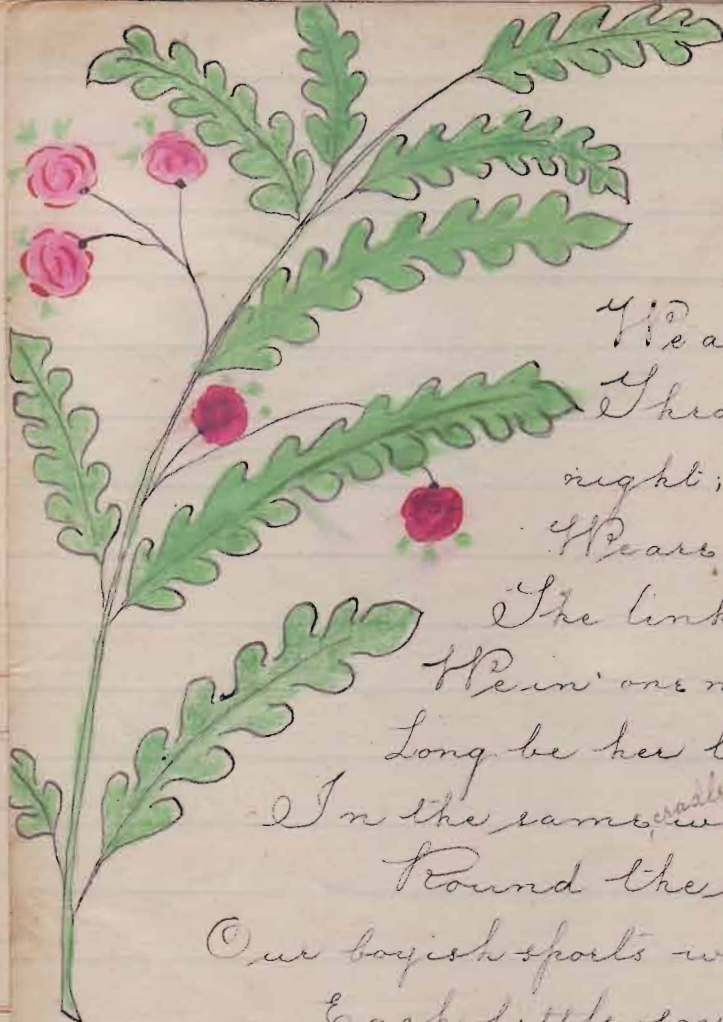 We a
Thro
night;
We are
The link
We in one m
Long be her l
In the same cradle w
Round the
Our boyish sports w
Each little